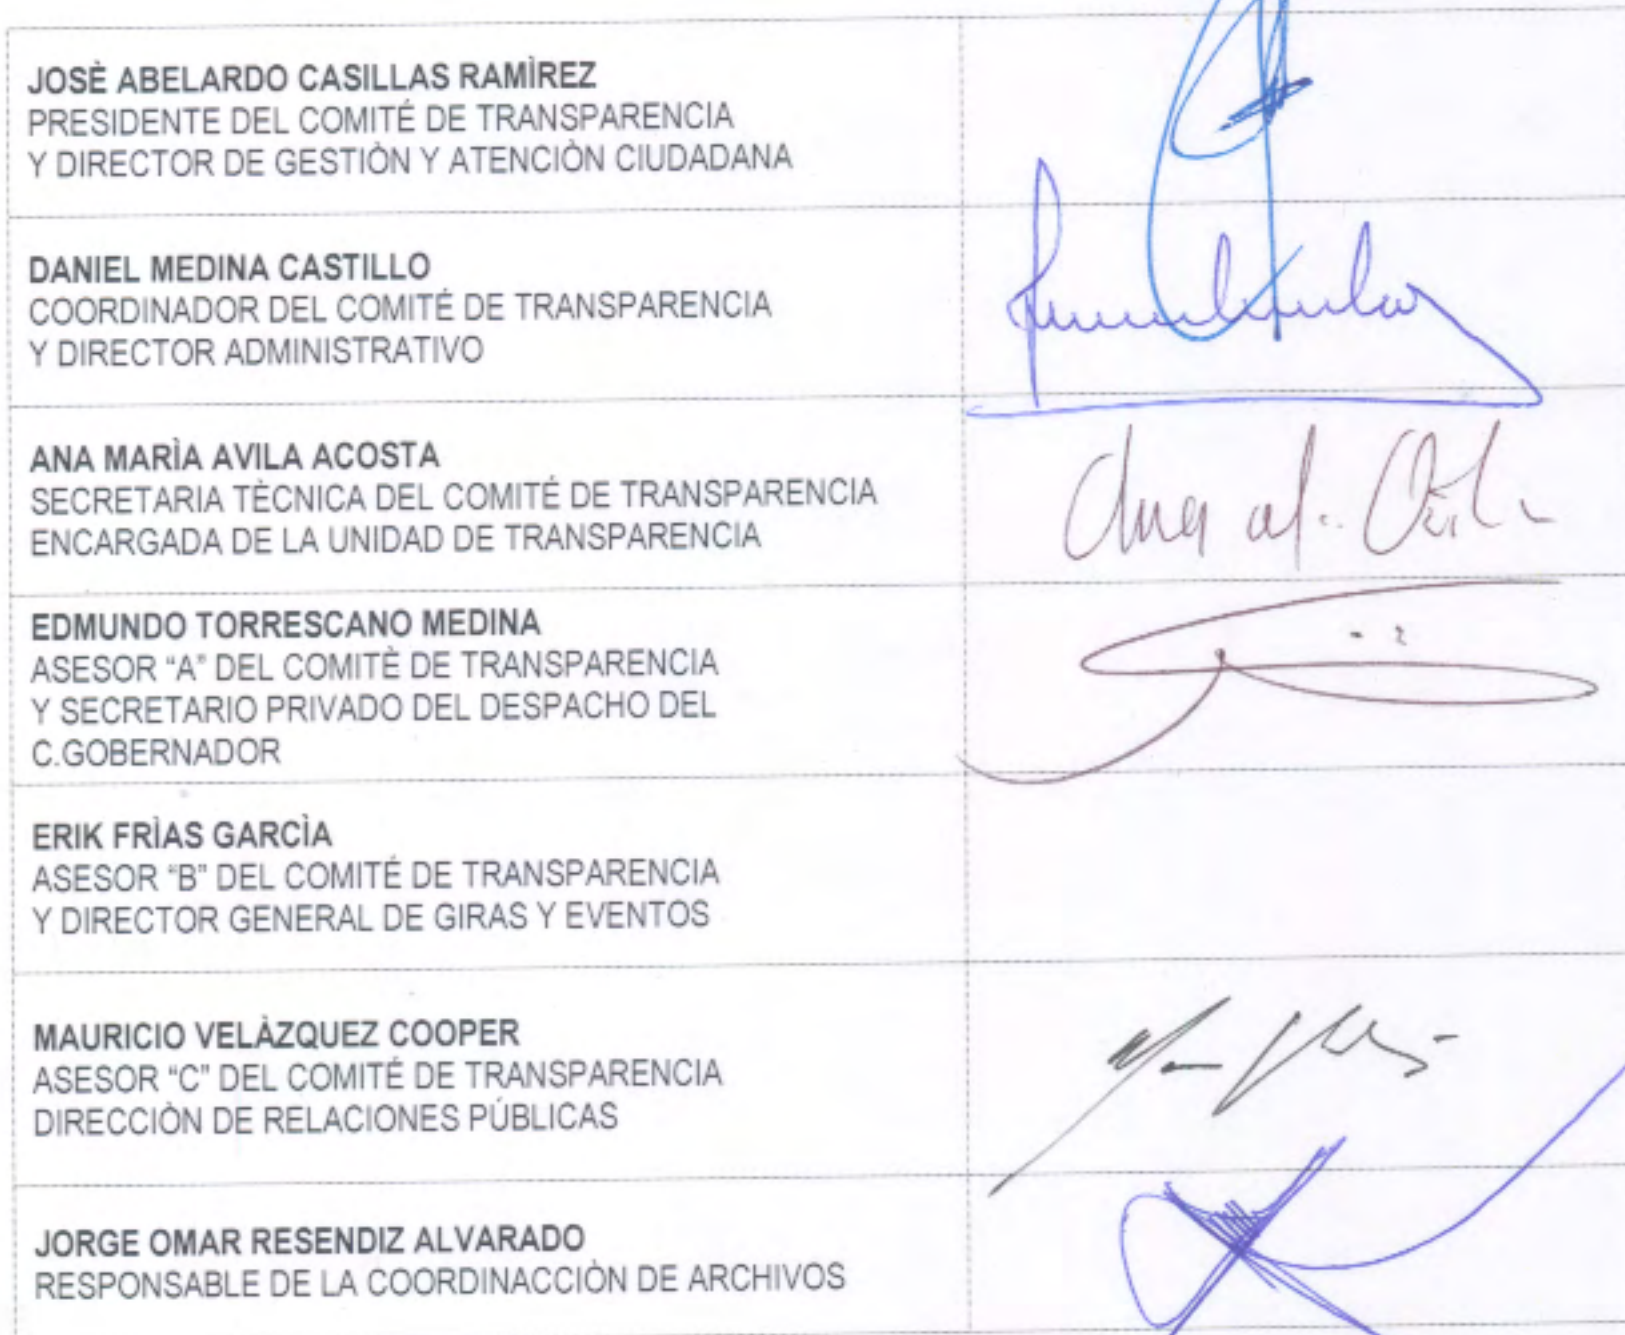 JOSÈ ABELARDO CASILLAS RAMÌREZ
PRESIDENTE DEL COMITÉ DE TRANSPARENCIA
Y DIRECTOR DE GESTIÒN Y ATENCIÒN CIUDADANA
DANIEL MEDINA CASTILLO
COORDINADOR DEL COMITÉ DE TRANSPARENCIA
Y DIRECTOR ADMINISTRATIVO
ANA MARÌA AVILA ACOSTA
SECRETARIA TÈCNICA DEL COMITÉ DE TRANSPARENCIA
ENCARGADA DE LA UNIDAD DE TRANSPARENCIA
EDMUNDO TORRESCANO MEDINA
ASESOR “A” DEL COMITÈ DE TRANSPARENCIA
Y SECRETARIO PRIVADO DEL DESPACHO DEL
C.GOBERNADOR
ERIK FRÌAS GARCÌA
ASESOR “B” DEL COMITÉ DE TRANSPARENCIA
Y DIRECTOR GENERAL DE GIRAS Y EVENTOS
MAURICIO VELÀZQUEZ COOPER
ASESOR “C” DEL COMITÉ DE TRANSPARENCIA
DIRECCIÒN DE RELACIONES PÚBLICAS
JORGE OMAR RESENDIZ ALVARADO
RESPONSABLE DE LA COORDINACCIÒN DE ARCHIVOS